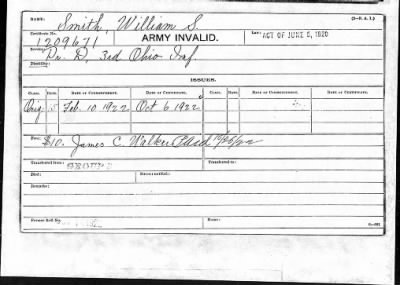 NAME: Smith, William S. (3-R.A.I.)
Certificate No. 1209671 ARMY INVALID. Law: ACT OF JUNE 5, 1920
Service: Pr. D, 3rd Ohio Inf.
Disability:
ISSUES.
CLASS. RATE. DATE OF COMMENCEMENT. DATE OF CERTIFICATE. CLASS. RATE. DATE OF COMMENCEMENT. DATE OF CERTIFICATE.
Orig. Feb. 10 1922 Oct 6 1922
Fee: $10. James C. Walker Paid
Transferred from: GROUP Transferred to:
Died:
Remarks:
Former Roll No. Home: